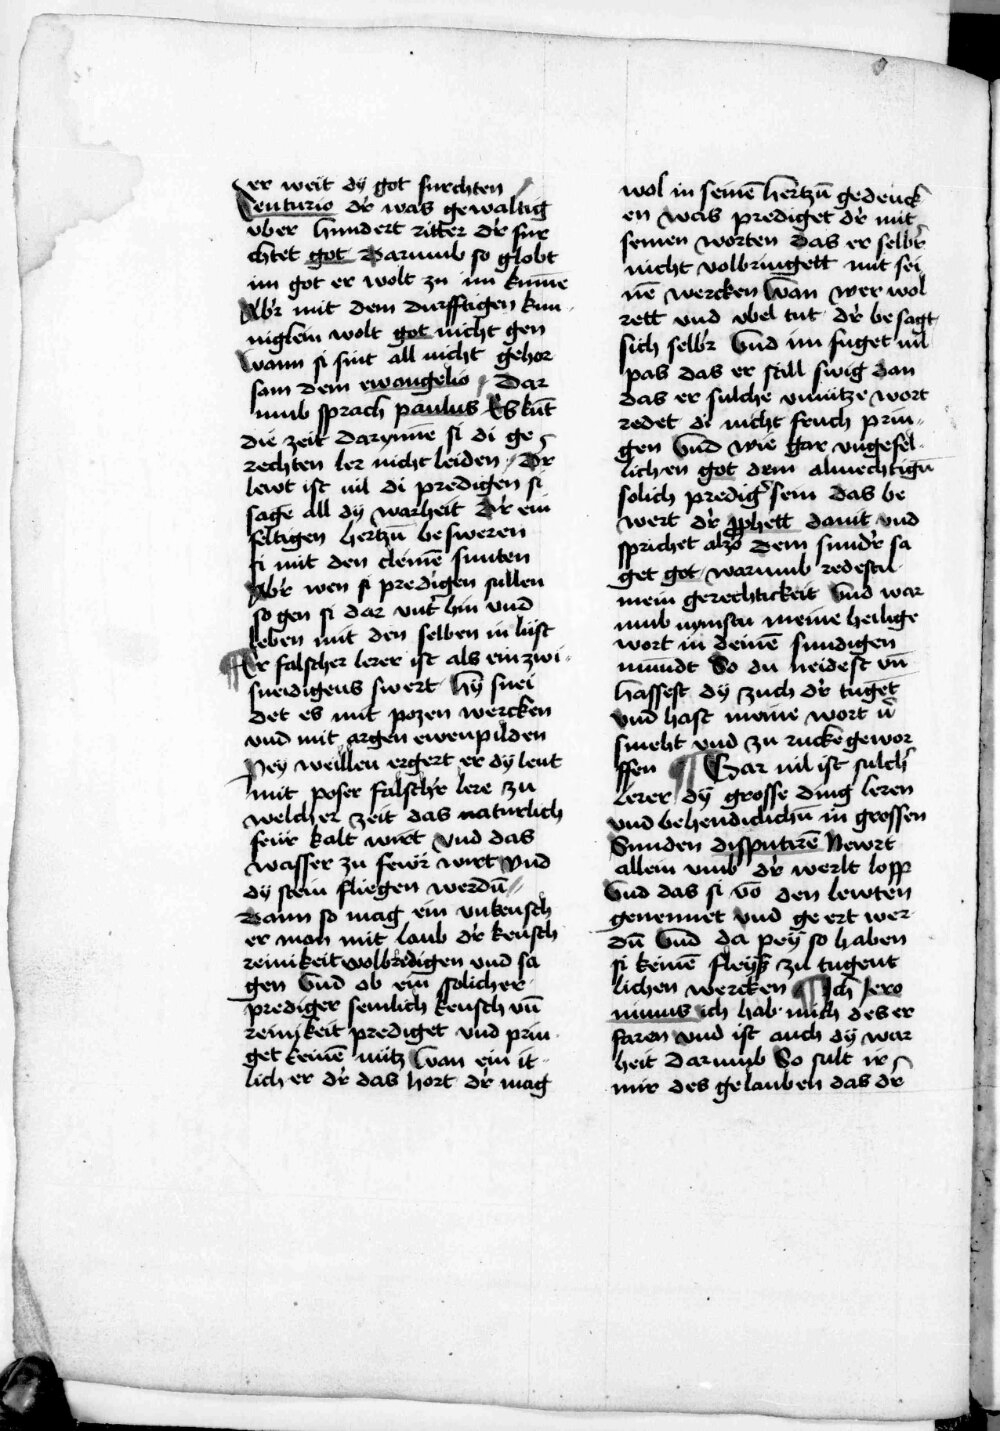 er weit dÿ got furchten
Centurio dr̕ was gewaltig
vber hundert ritter dr̕ fur
chtet got Darumb so globt
im got er wolt zu im kumē
Abr̕ mit dem durfftigen kun
niglein wolt got nicht gen
wann si sint all nicht gehor
sam dem ewangelio Dar
umb sprach paulus Es kūt
die zeit darynnē si di ge
rechten ler nicht leiden Dr̕
lewt ist uil di predigen si
sagē all dy warheit Dr̕ ein
feltigen hertzū besweren
si mit den clēinē sunten
Abr̕ wen si predigen sullen
so gen si dar unt̕ hin vnd
leben mit den selben in lust
¶ Er falscher lerer ist als ein zwi
sneidigens swert hÿ snei
det es mit pozen wercken
vnd mit argen ewenpilden
Pey weillen ergert er dy leut
mit poser falschr̕ lere zu
welcher zeit das naturlich
feür kalt wirt vnd das
wasser zu fewr̕ wirt vnd
dy stein fliegen werdū
Dann so mag ein vnkeusch
er man mit laub dr̕ keusch
reinikeit volbredigen vnd sa
gen Vnd ob ein solicher
prediger semlich keusch vū
reinikeit prediget vnd prin
get keinē nütz Wan ein it
lich er dr̕ das hort dr̕ mag
wol in seinē hertzū gedenck
en was prediget dr̕ mit
seinen worten das er selbr̕
nicht volbringett mit sei
nē wercken Wan wer wol
rett vnd vbel tut dr̕ besagt
sich selbr̕ Vnd im fuget uil
pas das er still swig dan
das er sulche vnnütze wort
redet di nicht fruch prin
gen Vnd wie gar vngefel
lichen got dem almechtigū
solich predig̕ sein das be
wert dr̕ pphett dauit vnd
sprichet alzo dem sundr̕ sa
get got warumb redestu
mein gerechtickeit Vnd war
umb nymstu meine heilige
wort in deinē sundigen
mundt So du neidest vn̄
hassest dy zuch dr̕ tugēt
vnd hast meine wort v̕
smeht vnd zu rucke gewor
ffen ¶ Gar uil ist sulch̕
lerer dÿ grosse ding leren
vnd behendiclichū in grossen
Sunden disputirē Newrt
allein vmb dr̕ werlt lopp
Vnd das si vō den lewten
genennet vnd geert wer
dū Vnd da peÿ so haben
si keinē fleyß zu tugent
lichen wercken ¶ Ich Jero
nimus ich hab mich des er
faren vnd ist auch dÿ war
heit darumb So sult ir
mir des gelauben das dr̕